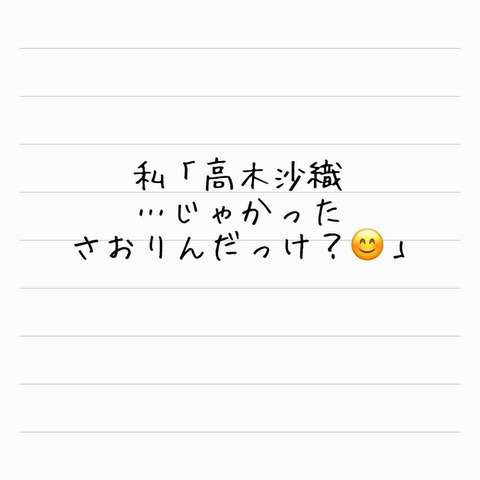 私「高木沙織
…じゃかった
さおりんだっけ？😊」